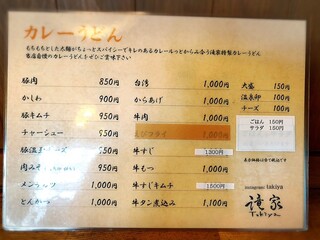 カレーうどん
もちもちとした太麺がちょっとスパイシーでキレのあるカレールっとがらみ合う滝家特製カレーうどん
当店自慢のカレーうどんをぜひご賞味下さい
豚肉 850円
かしわ 900円
豚キムチ 950円
チャーシュー 950円
950円
肉み
メンチカツ 1,000円
とんかつ 1,000円
台湾 1,000円
からあげ 1,000円
牛肉 1,000円
1,000円
牛すじ 1300円
牛もつ 1,000円
牛すじキムチ 1500円
牛タン煮込み 1,100円
大盛 150円
温泉卵 100円
チーズ 100円
ごはん 150円
サラダ 150円
表示価格は全て税込です
instagram: takiya
滝家
Takiya